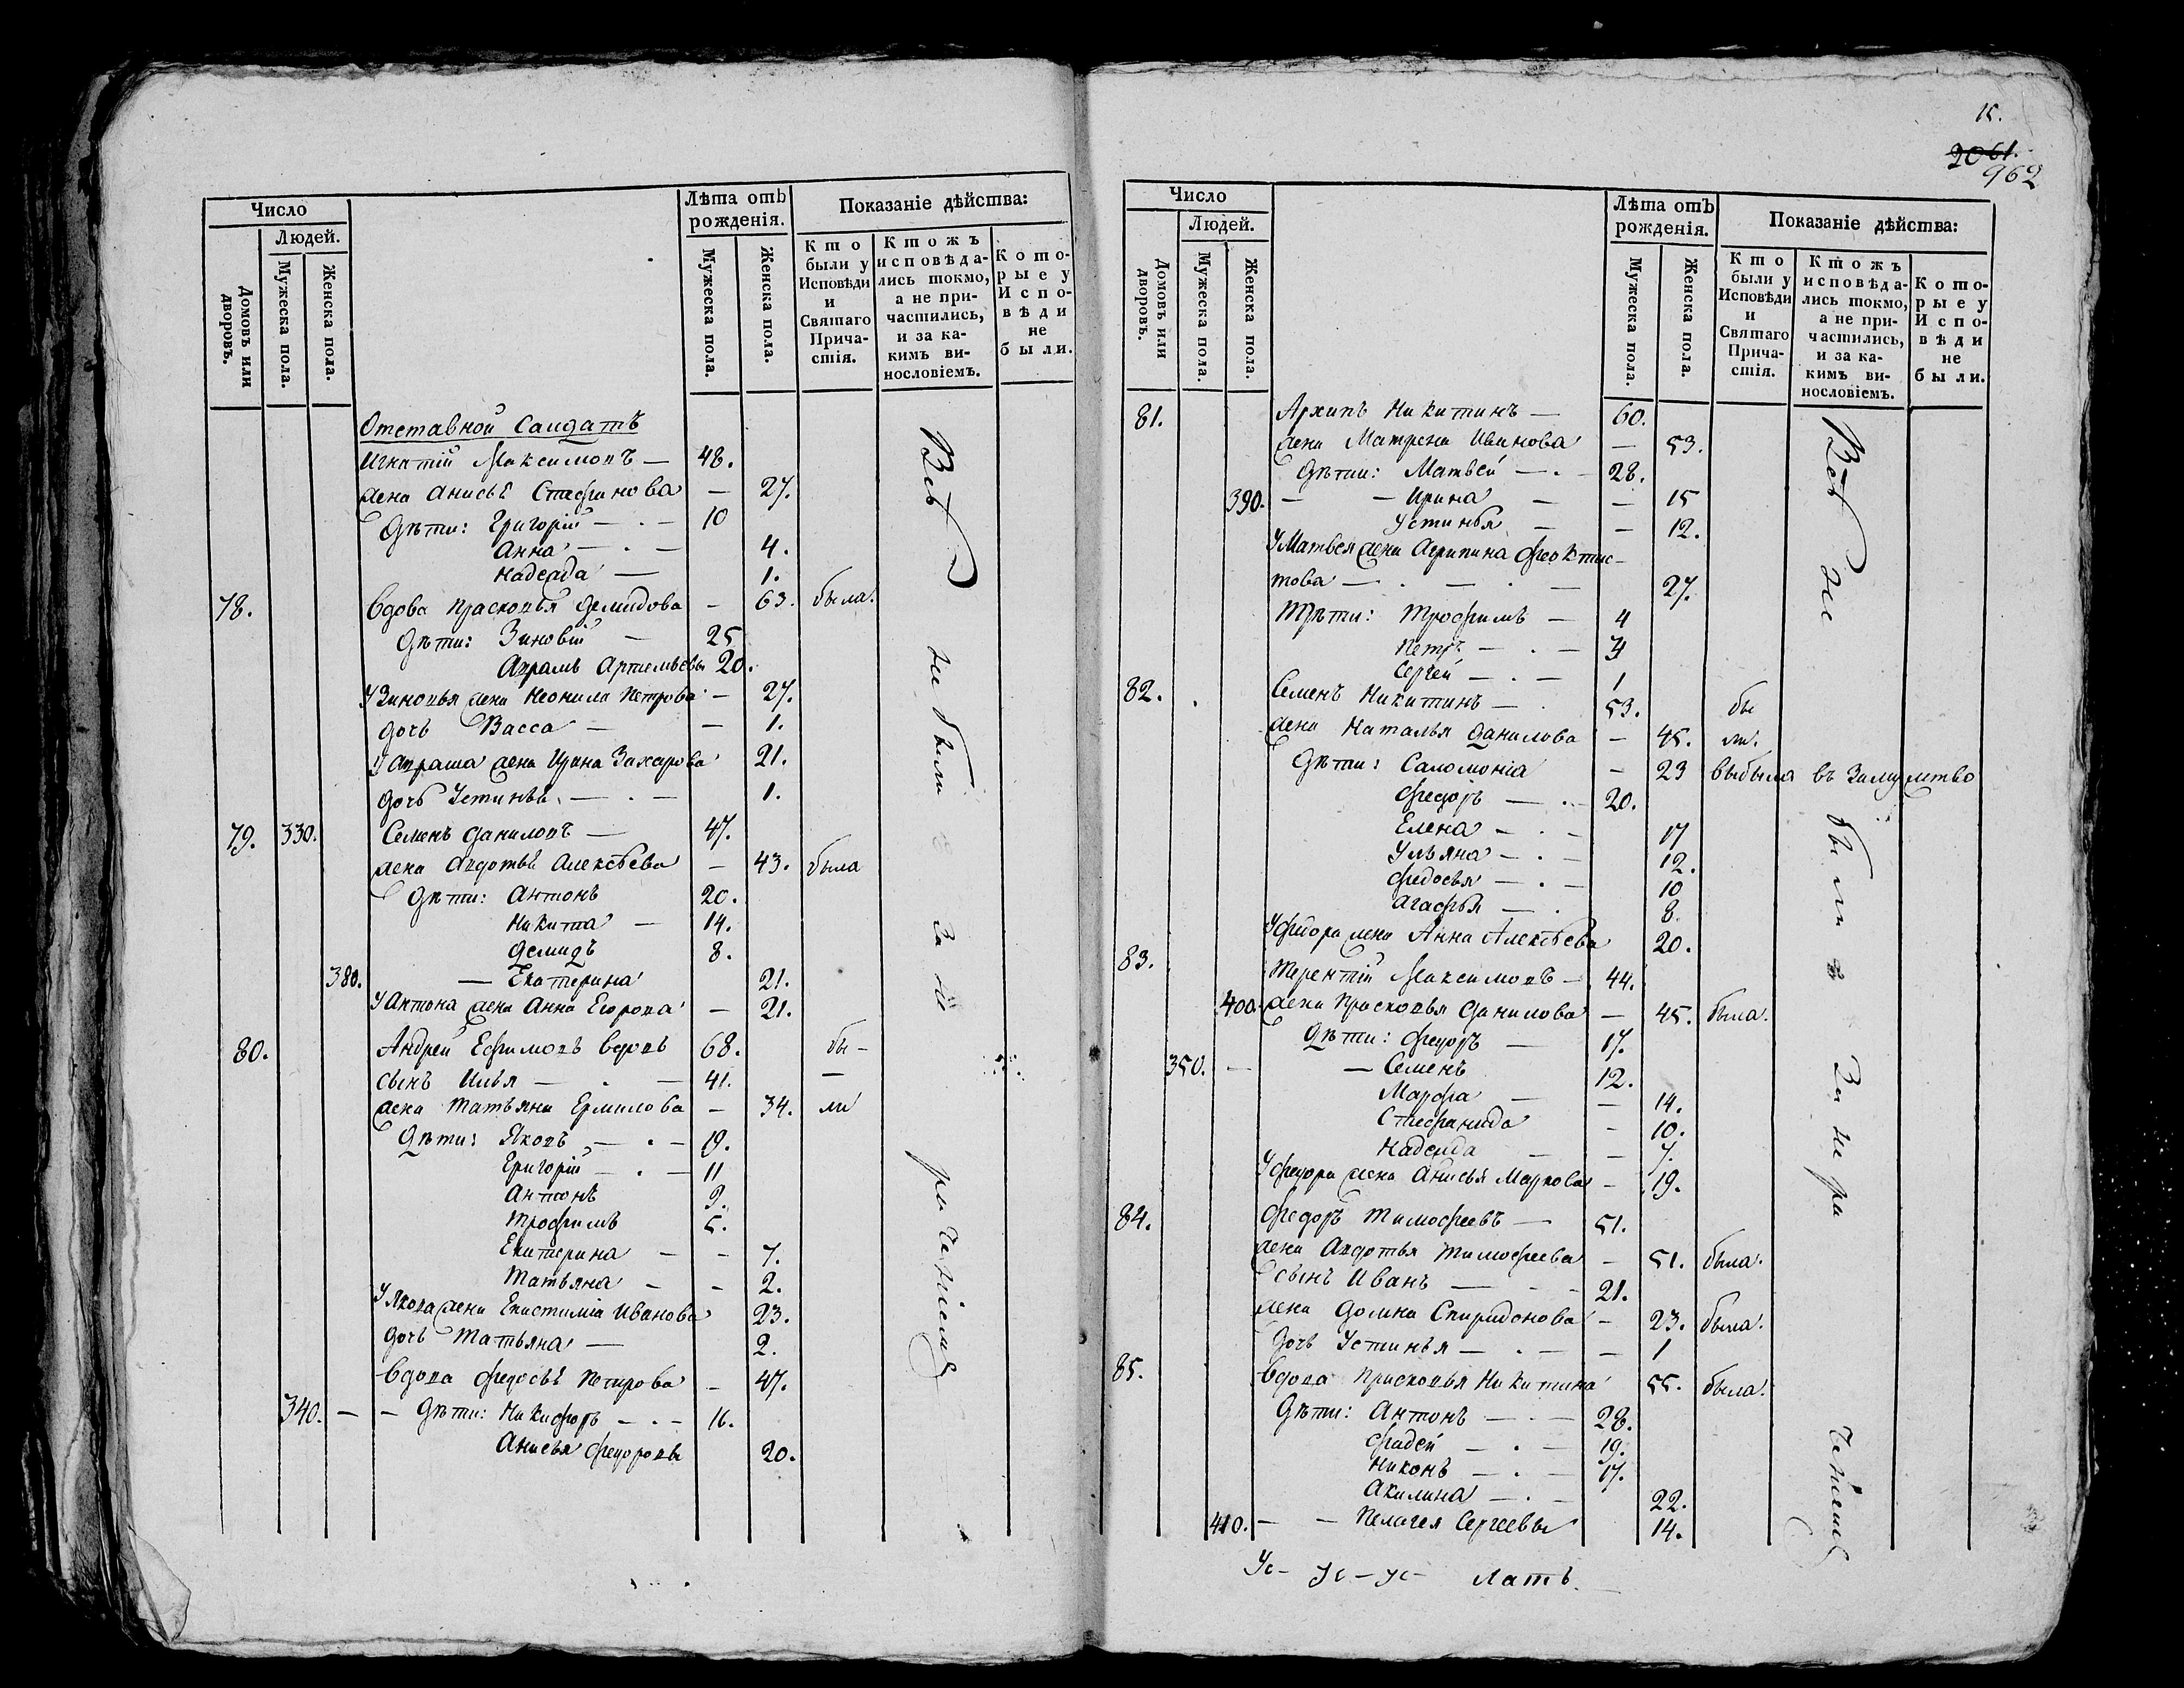 Число
Людей.
Домовъ или дворовъ.
Мужеска пола.
Женска пола.
Лѣта отъ рожденія.
Мужеска пола.
Женска пола.
Показаніе дѣйства:
Кто были у Исповѣди и Святаго Причастія.
Ктожъ исповѣдались токмо, а не причастились, и за какимъ винословіемъ.
Которые у Исповѣди не были.
Отставной Салдатъ
Игнатій Максимовъ — 48.
жена Анисья Стефанова — 27.
Дѣти: Григорій — . — 10
Анна — . — 4.
Надежда — 1.
78. вдова Прасковья Демидова — 63. была.
Дѣти: Зиновій — 25
Аврамъ Артемьевы 20.
У Зиновья жена Неонила Петрова — 27.
дочь Васса — — 1.
У Аврама жена Ирина Захарова 21.
дочь Устинья — . — 1.
79. 330. Семенъ Даниловъ — 47.
жена Авдотья Алексѣева — 43. была
Дѣти: Антонъ 20.
Никита — 14.
Демидъ 8.
380. — Екатерина 21.
У Антона жена Анна Егорова — 21.
80. Андрей Ефимовъ вдовъ 68. бы-
сынъ Илья — . — 41. —
жена Татьяна Ермилова — 34. ли
Дѣти: Яковъ — . — 19.
Григорій — . — 11
Антонъ 9.
Трофимъ 5.
Екатерина — — 7.
Татьяна — — 2.
У Якова жена Епистимія Иванова 23.
дочь Татьяна — 2.
вдова Федосья Петрова — 47.
340. — — Дѣти: Никифоръ — . — 16.
Анисья Федоровы 20.
Всѣ не были за не раченіемъ
15.
2061.
962
Число
Людей.
Домовъ или дворовъ.
Мужеска пола.
Женска пола.
Лѣта отъ рожденія.
Мужеска пола.
Женска пола.
Показаніе дѣйства:
Кто были у Исповѣди и Святаго Причастія.
Ктожъ исповѣдались токмо, а не причастились, и за какимъ винословіемъ.
Которые у Исповѣди не были.
81. Архипъ Никитинъ — 60.
жена Матрена Иванова — 53.
Дѣти: Матвей — . — 28.
390. — — Ирина — — 15
Устинья — — 12.
У Матвея жена Агрипина Феоктис-
това — . — . — 27.
Дѣти: Трофимъ — 4
Петръ — . —
Сергей — . — 1
82. Семенъ Никитинъ — . 53. бы
жена Наталья Данилова — 45. ли.
Дѣти: Саломонія — 23 выбыла въ замужство
Федоръ — . — 20.
Елена — . — 17
Ульяна — . — 12.
Федосья — . — 10
Агафья — . 8.
У Федора жена Анна Алексѣева 20.
83. Терентій Максимовъ — 44.
400. жена Прасковья Данилова — 45. была.
Дѣти: Федоръ — 17.
350. — — Семенъ 12.
Марфа — — 14.
Стефанида — 10.
Надежда — — 7.
У Федора жена Анисья Маркова — 19.
84. Федоръ Тимофеевъ — 51.
жена Авдотья Тимофеева — 51. была.
сынъ Иванъ — — — 21.
жена Домна Спиридонова — 23. была.
дочь Устинья — . — — 1
85. вдова Прасковья Никитина 55. была.
Дѣти: Антонъ — . — 28.
Фадей — . — 19.
Никонъ — . — 17.
Акилина — . — 22.
410. — — Пелагея Сергеевы 14.
Всѣ не были за не раченіемъ